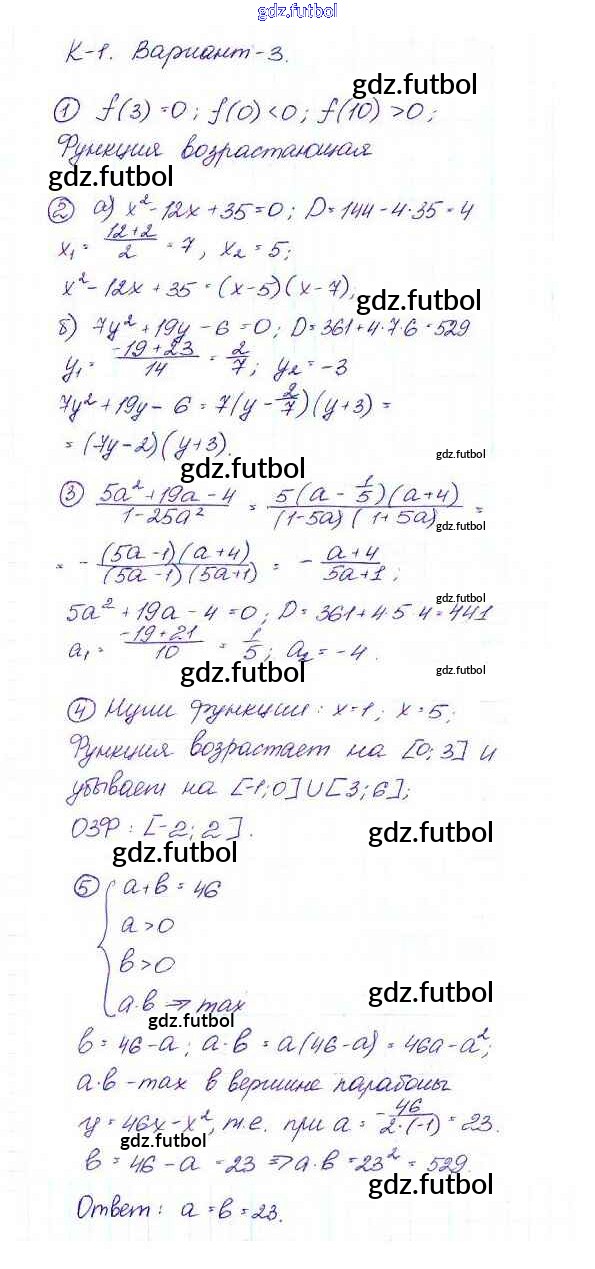 gdz.futbol
К-1. Вариант-3.
gdz.futbol
① f(3)=0; f(0)<0; f(10)>0;
Функция возрастающая
gdz.futbol
② а) x²-12x+35=0; D=144-4·35=4
x₁= (12+2)/2 =7, x₂=5;
x²-12x+35=(x-5)(x-7);
gdz.futbol
б) 7y²+19y-6=0; D=361+4·7·6=529
y₁= (-19+23)/14 = 2/7; y₂=-3
7y²+19y-6=7(y-2/7)(y+3)=
=(7y-2)(y+3).
gdz.futbol
gdz.futbol
③ (5a²+19a-4)/(1-25a²) = 5(a-1/5)(a+4)/((1-5a)(1+5a)) =
gdz.futbol
= - (5a-1)(a+4)/((5a-1)(5a+1)) = - (a+4)/(5a+1);
gdz.futbol
5a²+19a-4=0; D=361+4·5·4=441
a₁= (-19+21)/10 = 1/5; a₂=-4.
gdz.futbol
gdz.futbol
④ Нули функции: x=1; x=5;
Функция возрастает на [0; 3] и
убывает на [-1;0]∪[3;6];
ОЗФ: [-2; 2].
gdz.futbol
gdz.futbol
⑤ { a+b=46
a>0
b>0
a·b ⇒ max
gdz.futbol
gdz.futbol
b=46-a; a·b=a(46-a)=46a-a²;
a·b-max в вершине параболы
y=46x-x², т.е. при a= -46/(2·(-1)) =23.
gdz.futbol
b=46-a=23⇒a·b=23²=529.
gdz.futbol
Ответ: a=b=23.